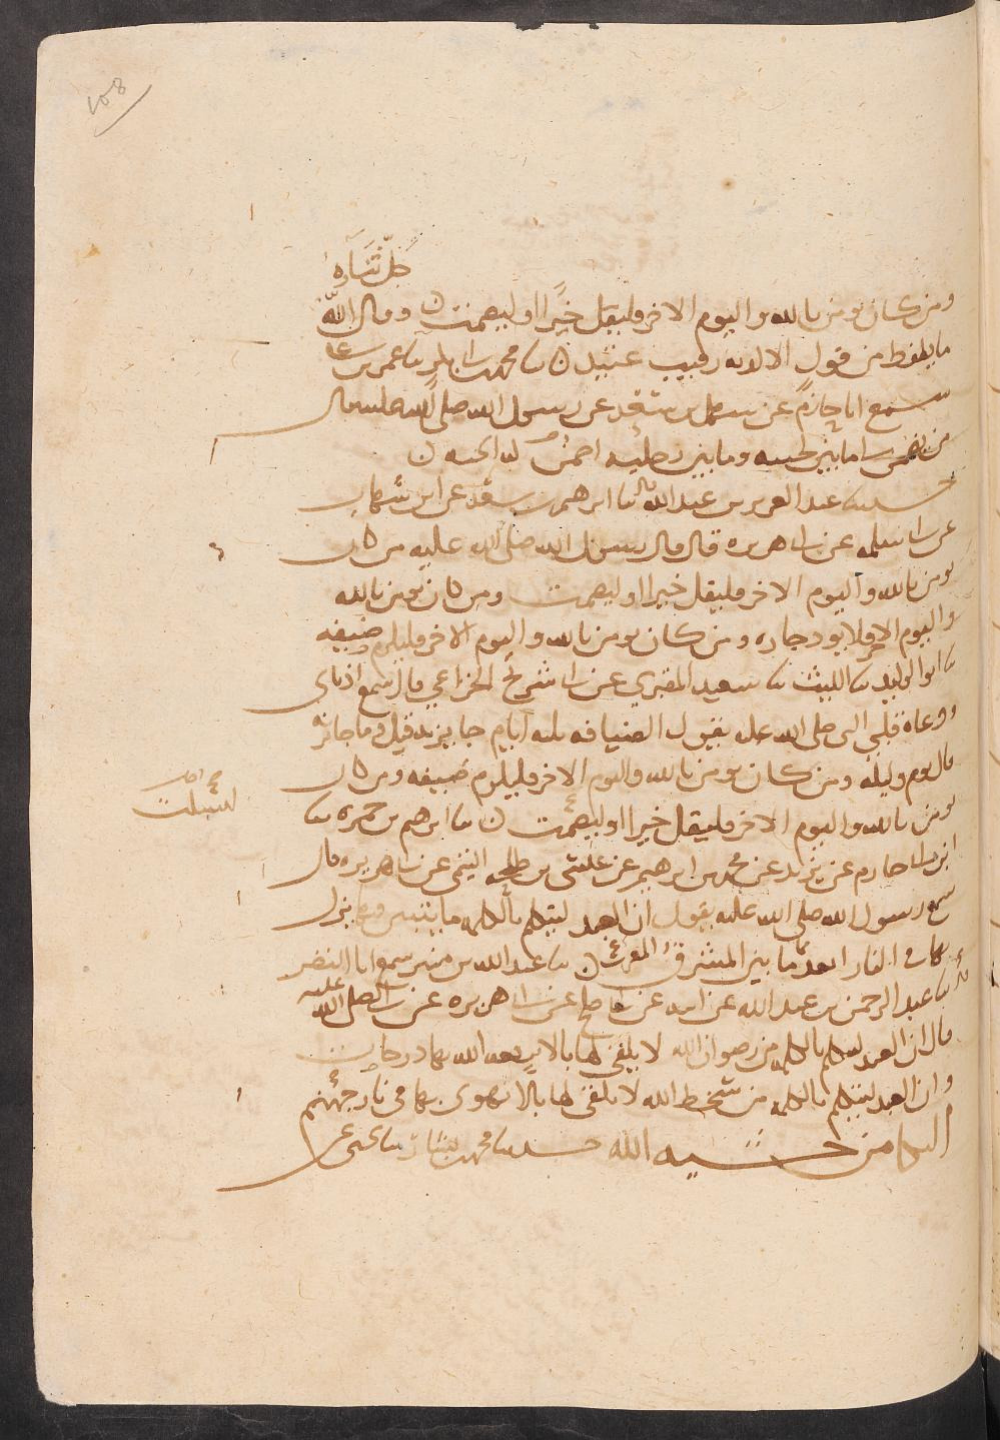 جل ثناوه
ومن كان يومن بالله واليوم الاخر فليقل خيرا او ليصمت وقال الله
ما يلفظ من قول الا لديه رقيب عتيد ثنا محمد بن ابى بكر ثنا عمر بن على
سمع ابا حازم عن سهل بن سعد عن رسول الله صلى الله عليه قال
من يضمن لى ما بين لحييه وما بين رجليه اضمن له الجنه
حدثنا عبد العزيز بن عبد الله قال ثنا ابرهيم بن سعد عن ابن شهاب
عن ابى سلمه عن ابى هريره قال قال رسول الله صلى الله عليه من كان
يومن بالله واليوم الاخر فليقل خيرا او ليصمت ومن كان يومن بالله
واليوم الاخر فلا يوذ جاره ومن كان يومن بالله واليوم الاخر فليكرم ضيفه
ثنا ابو الوليد ثنا الليث ثنا سعيد المقبري عن ابى شريح الخزاعي قال سمع اذناى
ووعاه قلبي النبى صلى الله عليه يقول الضيافه ثلثه ايام جايزته قيل وما جائزته
قال يوم وليله ومن كان يومن بالله واليوم الاخر فليكرم ضيفه ومن كان
يومن بالله واليوم الاخر فليقل خيرا او ليصمت ثنا ابرهيم بن حمزه ثنا
ابن ابى حازم عن يزيد عن محمد بن ابرهيم عن عيسى بن طلحه التيمي عن ابى هريره قال
سمع رسول الله صلى الله عليه يقول ان العبد ليتكلم بالكلمه ما يتبين فيها يزل
بها في النار ابعد مما بين المشرق والمغرب ثنا عبد الله بن منير سمع ابا النضر
ثنا عبد الرحمن بن عبد الله عن ابيه عن ابى صالح عن ابى هريره عن النبى صلى الله عليه
قال ان العبد ليتكلم بالكلمه من رضوان الله لا يلقي لها بالا يرفعه الله بها درجات
وان العبد ليتكلم بالكلمه من سخط الله لا يلقي لها بالا يهوي بها في نار جهنم
البكا من خشيه الله حدثنا محمد بن بشار ثنا يحيى عن
ليسكت